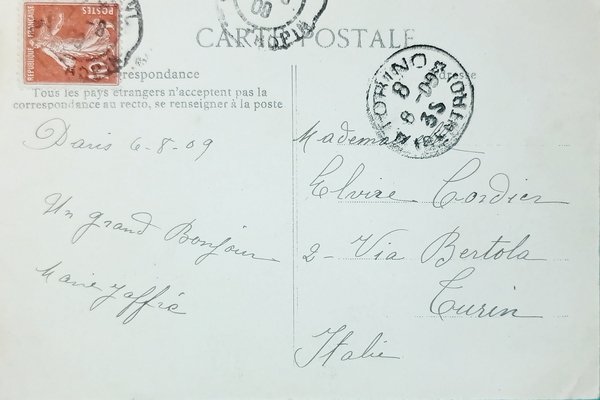 POSTES
REPUBLIQUE FRANÇAISE
10
CARTE POSTALE
Correspondance
Tous les pays étrangers n'acceptent pas la
correspondance au recto, se renseigner à la poste
TORINO
8
8-09
3S
Paris 6-8-09
Un grand Bonjour
Marie Jaffré
Mademoi
Elvire Cordier
2 - Via Bertola
Turin
Italie